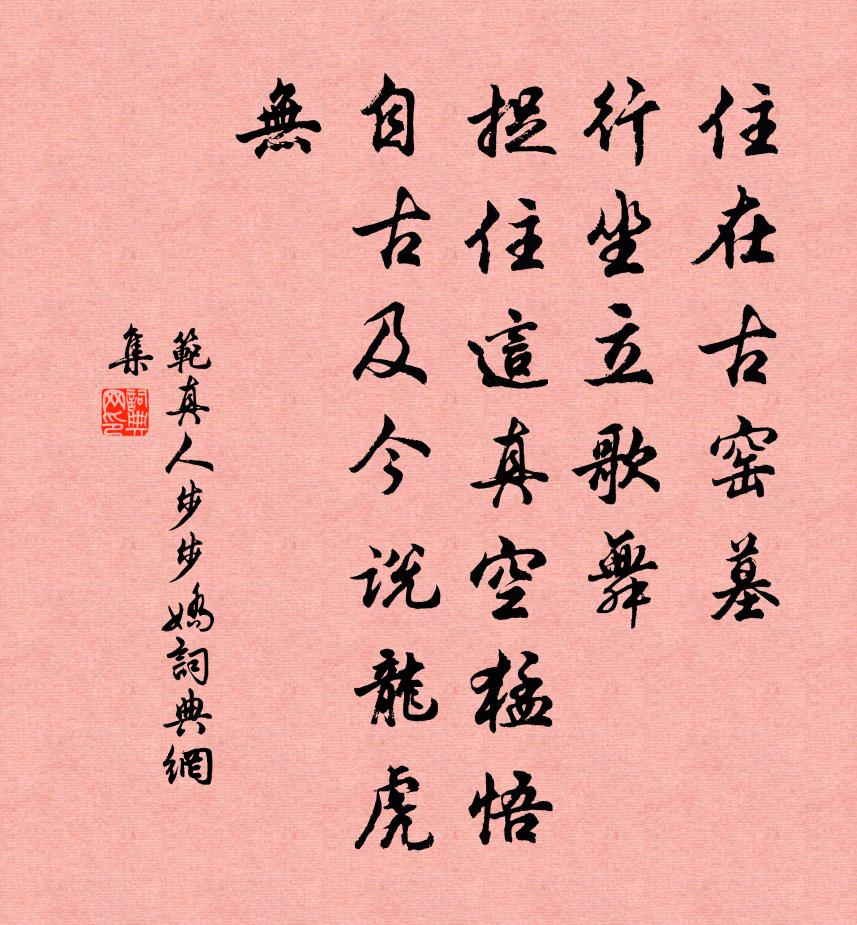 住在古窑墓
行坐立歌舞
捉住這真空猛悟
自古及今说龍虎
無
範真人步步嬌詞典網
集
詞典
网印